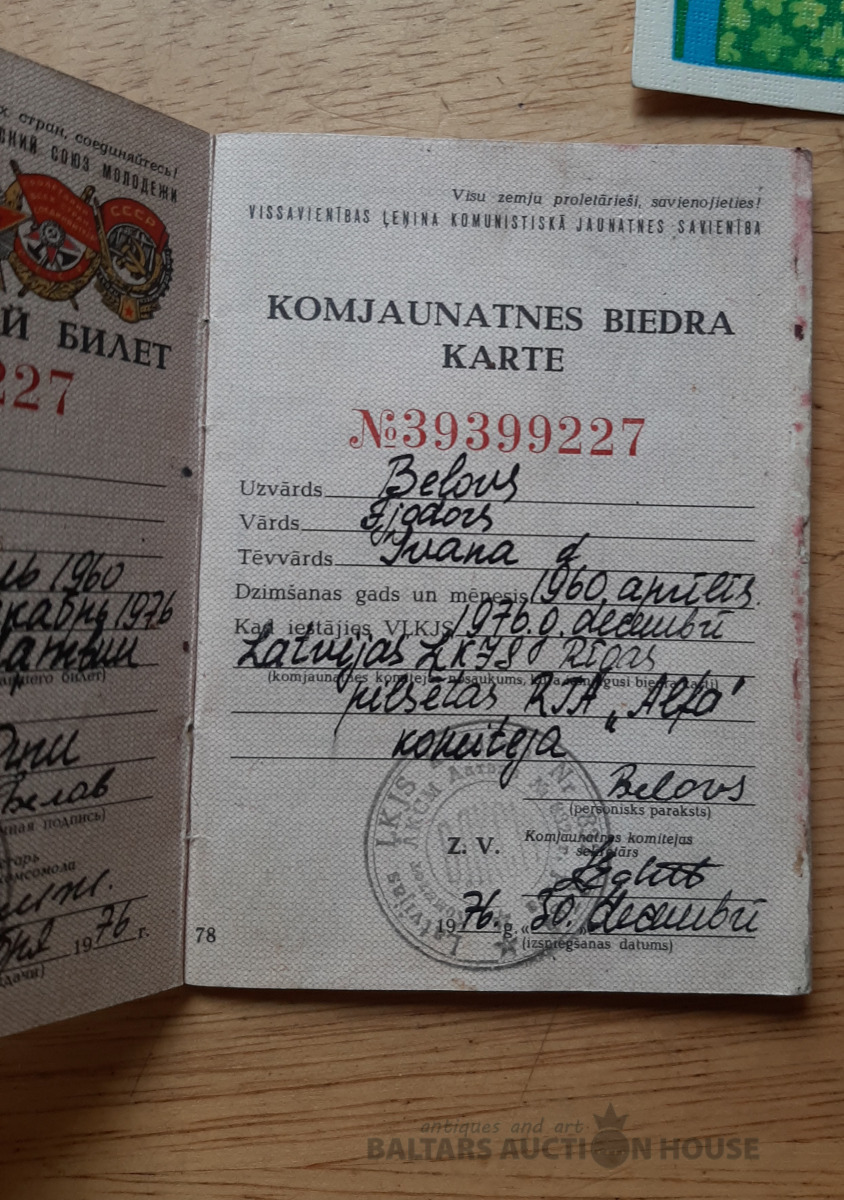 х стран, соединяйтесь!
СКИЙ СОЮЗ МОЛОДЕЖИ
СССР
Й БИЛЕТ
227
1960
1976
ного билет)
Белов
ная подпись)
тарь
омсомола
1976 г.
дачи)
Visu zemju proletārieši, savienojieties!
VISSAVIENĪBAS ĻEŅINA KOMUNISTISKĀ JAUNATNES SAVIENĪBA
KOMJAUNATNES BIEDRA
KARTE
№39399227
Uzvārds Belovs
Vārds Fjodors
Tēvvārds Ivana d
Dzimšanas gads un mēnesis 1960. aprīlis.
Kad iestājies VĻKJS 1976.g. decembrī
Latvijas ĻKJS Rīgas
(komjaunatnes komitejas nosaukums, kura izsniegusi biedra karti)
pilsētas RTA „Alfa"
komiteja
Belovs
(personisks paraksts)
Z. V.
Komjaunatnes komitejas
sekretārs
1976. g. „30." decembrī
(izsniegšanas datums)
Latvijas ĻKJS
78
antiques and art
BALTARS AUCTION HOUSE